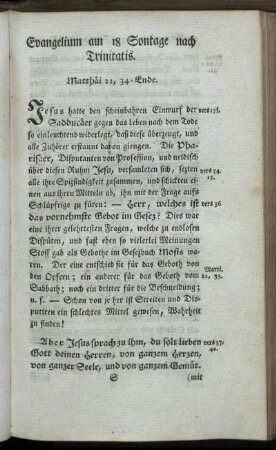 Evangelium am 18 Sontage nach
Trinitatis.
Matthäi 22, 34-Ende.
Jesus hatte den scheinbahren Einwurf der vers 35.
Sadducäer gegen das leben nach dem Tode
so einleuchtend widerlegt, daß diese überzeugt, und
alle Zuhörer erstaunt davon giengen. Die Pha-
risäer, Disputanten von Profession, und neidisch
über diesen Ruhm Jesu, versamleten sich, sezten vers 34.
alle ihre Spizfindigkeit zusammen, und schickten ei-
nen aus ihren Mitteln ab, ihn mit der Frage aufs
Schlüpfrige zu füren: — Herr, welches ist vers 36
das vornehmste Gebot im Gesez? Dies war
eine ihrer gelehrtesten Fragen, welche zu endlosen
Dispüten, und fast eben so vielerlei Meinungen
Stoff gab als Gebothe im Gesezbuch Mosis wa-
ren. Der eine entschied sie für das Geboth von
den Opfern; ein anderer für das Geboth vom
Sabbath; noch ein dritter für die Beschneidung;
u. s. — Schon von je her ist Streiten und Dis-
putiren ein schlechtes Mittel gewesen, Wahrheit
zu finden!
Aber Jesus sprach zu ihm, du solt lieben vers 37,
Gott deinen Herren, von ganzem Herzen,
von ganzer Seele, und von ganzem Gemüt.
S (mit